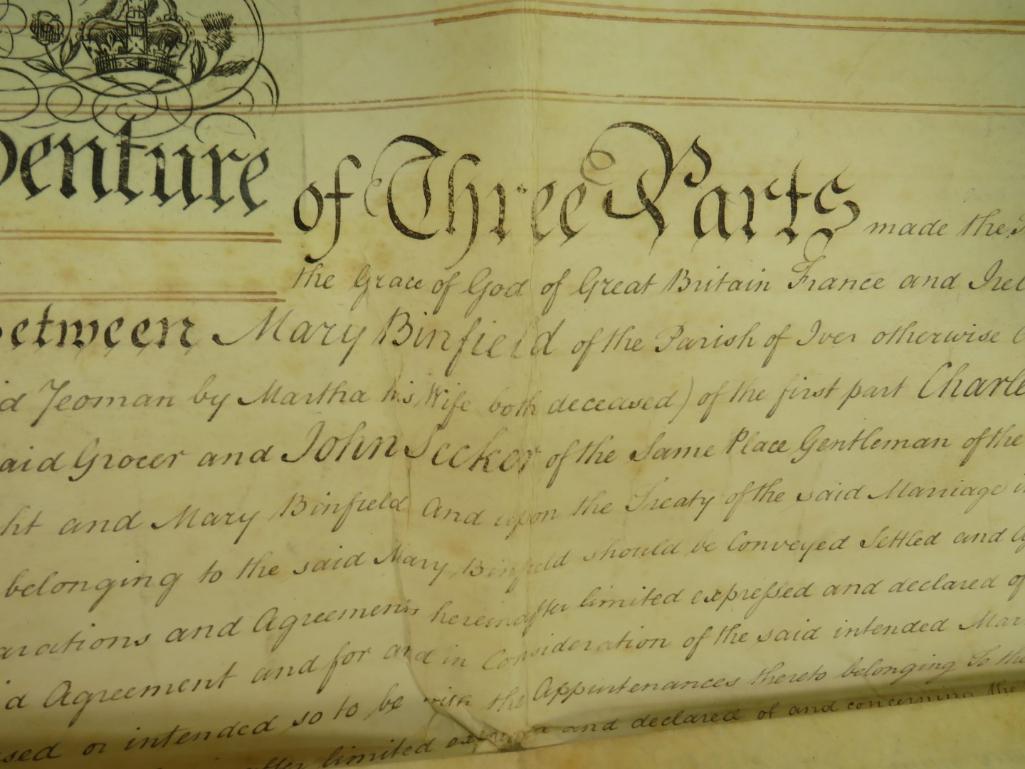 enture of Three Parts made the
the Grace of God of Great Britain France and Irel
etween Mary Binfield of the Parish of Iver otherwise
d Yeoman by Martha his Wife both deceased) of the first part Charle
aid Grocer and John Secker of the Same Place Gentleman of the
ht and Mary Binfield And upon the Treaty of the said Marriage
belonging to the said Mary Binfield should be Conveyed Settled and
arations and Agreements hereinafter limited expressed and declared of
id Agreement and for and in Consideration of the said intended Mar
sed or intended so to be with the Appurtenances thereto belonging To the
after limited expressed and declared of and concerning the